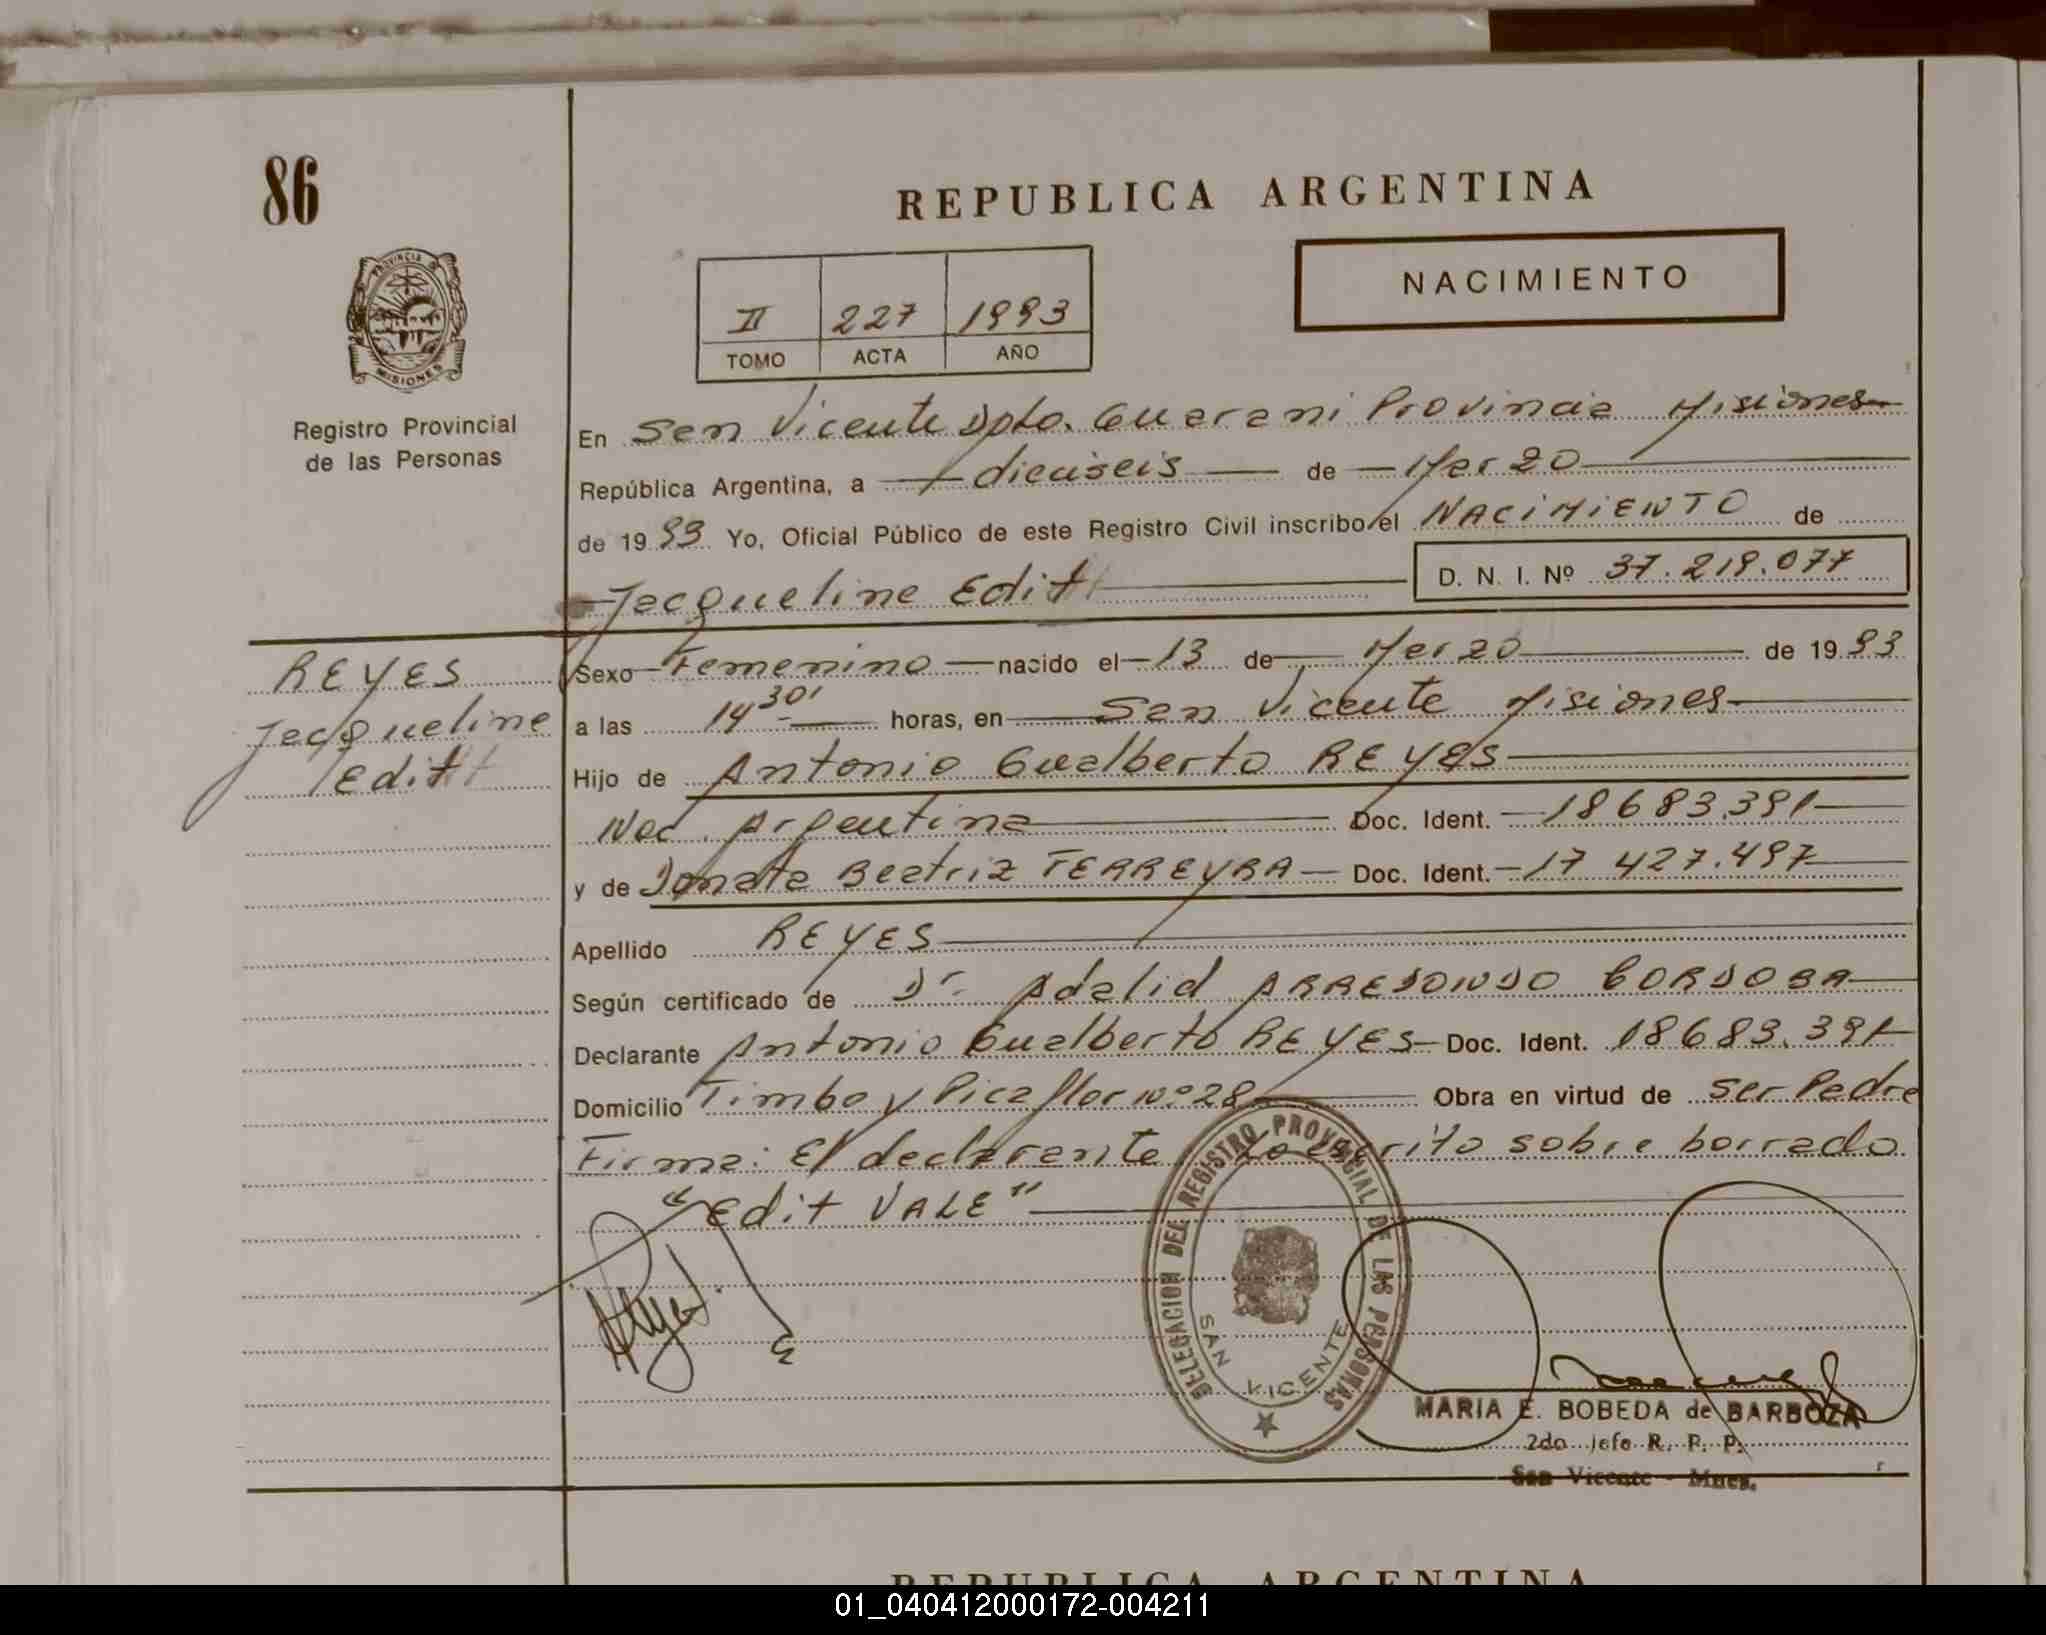 86
REPUBLICA ARGENTINA
NACIMIENTO
II 227 1993
TOMO ACTA AÑO
PROVINCIA DE
MISIONES
Registro Provincial
de las Personas
En San Vicente Dpto. Guarani Provincia Misiones
República Argentina, a dieciseis de Marzo
de 1993 Yo, Oficial Público de este Registro Civil inscribo el NACIMIENTO de
Jacqueline Edit D. N. I. Nº 37.219.077
REYES
Jacqueline
Edit
Sexo Femenino nacido el 13 de Marzo de 1993
a las 14 30' horas, en San Vicente Misiones
Hijo de Antonio Gualberto REYES
Nac. Argentina Doc. Ident. 18683.391
y de Donata Beatriz FERREYRA Doc. Ident. 17 427.497
Apellido REYES
Según certificado de Dr. Adalid ARREDONDO CORDOBA
Declarante Antonio Gualberto REYES Doc. Ident. 18683.391
Domicilio Timbo y Picaflor Nº 28 Obra en virtud de ser Padre
Firma: El declarante Lo escrito sobre borrado
"Edit VALE"
DELEGACION DEL REGISTRO PROVINCIAL DE LAS PERSONAS
SAN VICENTE
MARIA E. BOBEDA de BARBOZA
2do Jefe R. P. P.
San Vicente - Mnes.
REPUBLICA ARGENTINA
01_040412000172-004211